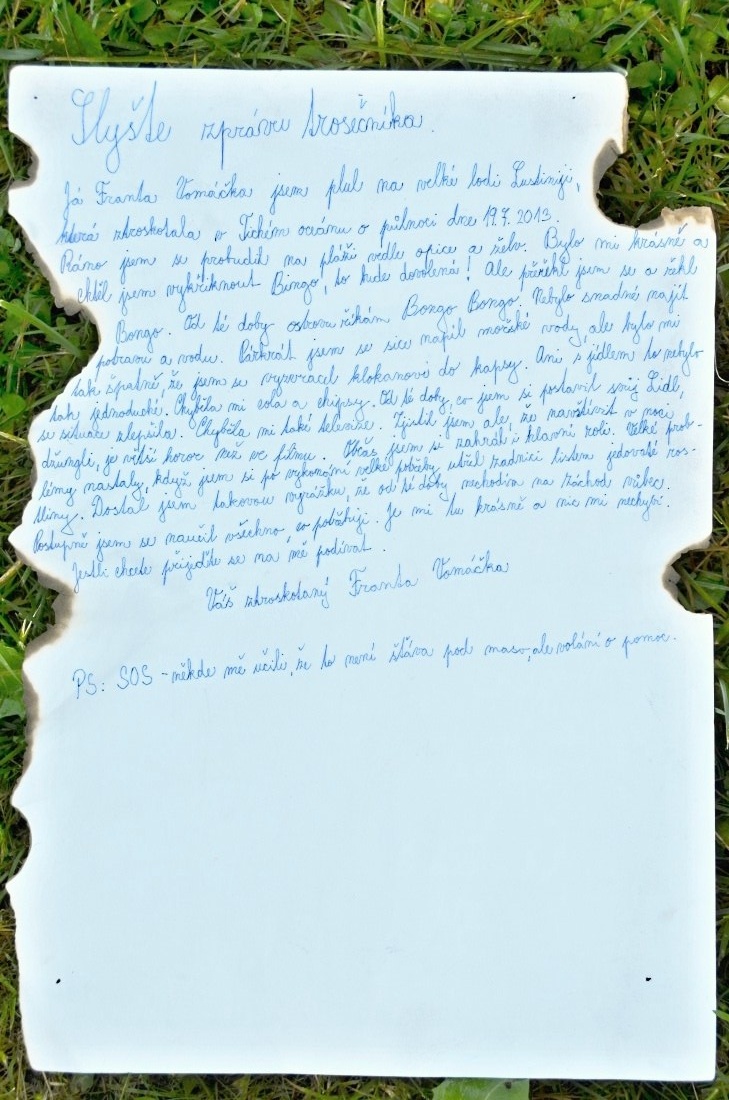 Slyšte zprávu trosečníka.
Já Franta Vomáčka jsem plul na velké lodi Lustiniji,
která ztroskotala v Tichém oceánu o půlnoci dne 19.7.2013.
Ráno jsem se probudil na pláži vedle opice a želv. Bylo mi krásně a
chtěl jsem vykřiknout Bingo, to bude dovolená! Ale přeřekl jsem se a řekl
Bongo. Od té doby ostrovu říkám Bongo Bongo. Nebylo snadné najít
potravu a vodu. Párkrát jsem se sice napil mořské vody, ale bylo mi
tak špatně, že jsem se vyzvracel klokanovi do kapsy. Ani s jídlem to nebylo
tak jednoduché. Chyběla mi cola a chipsy. Od té doby, co jsem si postavil svůj Lidl,
se situace zlepšila. Chyběla mi také televize. Zjistil jsem ale, že navštívit v noci
džungli, je větší horor než ve filmu. Občas jsem se zahrál i hlavní roli. Velké prob-
lémy nastaly, když jsem si po vykonání velké potřeby utřel zadnici listem jedovaté ros-
tliny. Dostal jsem takovou vyrážku, že od té doby nechodím na záchod vůbec.
Postupně jsem se naučil všechno, co potřebuji. Je mi tu krásně a nic mi nechybí.
Jestli chcete přijeďte se na mě podívat.
Váš ztroskotaný Franta Vomáčka
PS: SOS - někde mě učili, že to není šťáva pod maso, ale volání o pomoc.